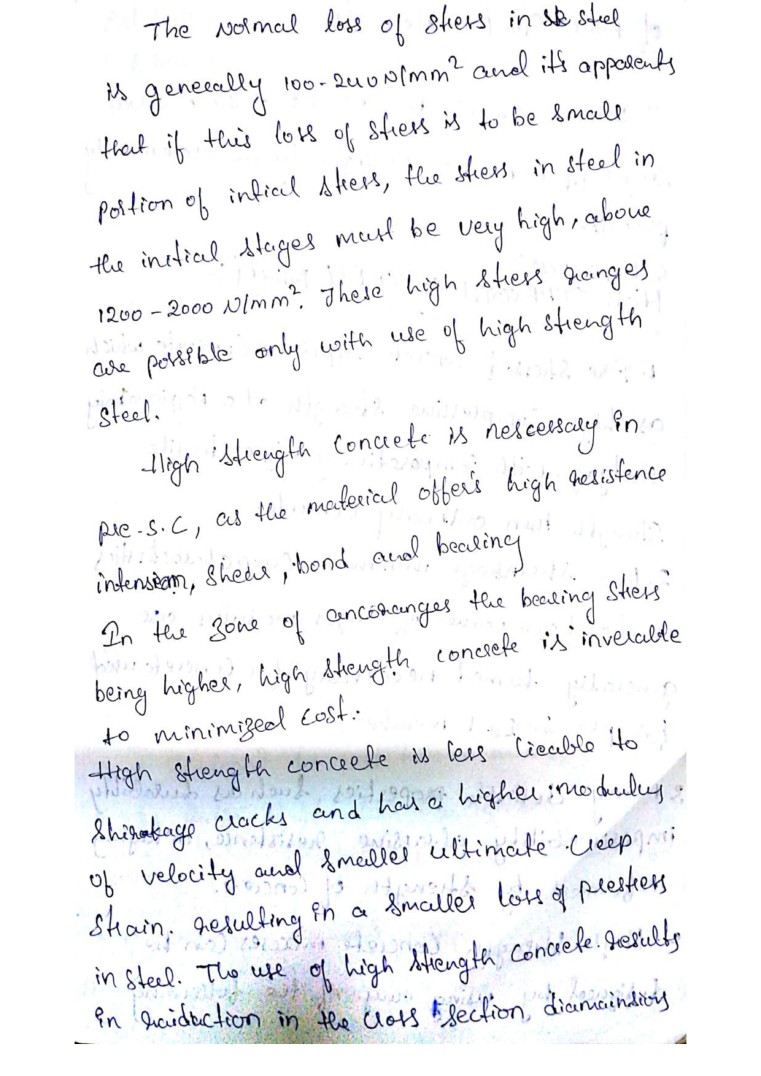 The normal loss of stress in steel
is generally 100-240 N/mm² and it's apparents
that if this loss of stress is to be small
portion of intial stress, the stress in steel in
the initial stages must be very high, above
1200 - 2000 N/mm². These high stress ranges
are possible only with use of high strength
steel.
High strength concrete is nescessary in
pre.S.C, as the material offers high resistence
intension, shear, bond and bearing
In the zone of ancoranges the bearing stress
being higher, high strength concrete is inverable
to minimized cost.
High strength concrete is less lieable to
Shirakage cracks and has a higher modulus
of velocity and smaller ultimate creep
strain. resulting in a smaller loss of prestress
in steel. The use of high strength concrete results
in raiduction in the cross section diamainsions